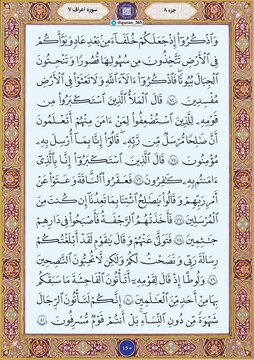 جزء ۸
@quran_365
سوره اعراف ۷
وَٱذْكُرُوٓا۟ إِذْ جَعَلَكُمْ خُلَفَآءَ مِنۢ بَعْدِ عَادٍ وَبَوَّأَكُمْ
فِى ٱلْأَرْضِ تَتَّخِذُونَ مِن سُهُولِهَا قُصُورًا وَتَنْحِتُونَ
ٱلْجِبَالَ بُيُوتًا فَٱذْكُرُوٓا۟ ءَالَآءَ ٱللَّهِ وَلَا تَعْثَوْا۟ فِى ٱلْأَرْضِ
مُفْسِدِينَ ﴿٧٤﴾ قَالَ ٱلْمَلَأُ ٱلَّذِينَ ٱسْتَكْبَرُوا۟ مِن
قَوْمِهِۦ لِلَّذِينَ ٱسْتُضْعِفُوا۟ لِمَنْ ءَامَنَ مِنْهُمْ أَتَعْلَمُونَ
أَنَّ صَٰلِحًا مُّرْسَلٌ مِّن رَّبِّهِۦ قَالُوٓا۟ إِنَّا بِمَآ أُرْسِلَ بِهِۦ
مُؤْمِنُونَ ﴿٧٥﴾ قَالَ ٱلَّذِينَ ٱسْتَكْبَرُوٓا۟ إِنَّا بِٱلَّذِىٓ
ءَامَنتُم بِهِۦ كَٰفِرُونَ ﴿٧٦﴾ فَعَقَرُوا۟ ٱلنَّاقَةَ وَعَتَوْا۟ عَنْ
أَمْرِ رَبِّهِمْ وَقَالُوا۟ يَٰصَٰلِحُ ٱئْتِنَا بِمَا تَعِدُنَآ إِن كُنتَ مِنَ
ٱلْمُرْسَلِينَ ﴿٧٧﴾ فَأَخَذَتْهُمُ ٱلرَّجْفَةُ فَأَصْبَحُوا۟ فِى دَارِهِمْ
جَٰثِمِينَ ﴿٧٨﴾ فَتَوَلَّىٰ عَنْهُمْ وَقَالَ يَٰقَوْمِ لَقَدْ أَبْلَغْتُكُمْ
رِسَالَةَ رَبِّى وَنَصَحْتُ لَكُمْ وَلَٰكِن لَّا تُحِبُّونَ ٱلنَّٰصِحِينَ
﴿٧٩﴾ وَلُوطًا إِذْ قَالَ لِقَوْمِهِۦٓ أَتَأْتُونَ ٱلْفَٰحِشَةَ مَا سَبَقَكُم
بِهَا مِنْ أَحَدٍ مِّنَ ٱلْعَٰلَمِينَ ﴿٨٠﴾ إِنَّكُمْ لَتَأْتُونَ ٱلرِّجَالَ
شَهْوَةً مِّن دُونِ ٱلنِّسَآءِ بَلْ أَنتُمْ قَوْمٌ مُّسْرِفُونَ ﴿٨١﴾
١٦٠